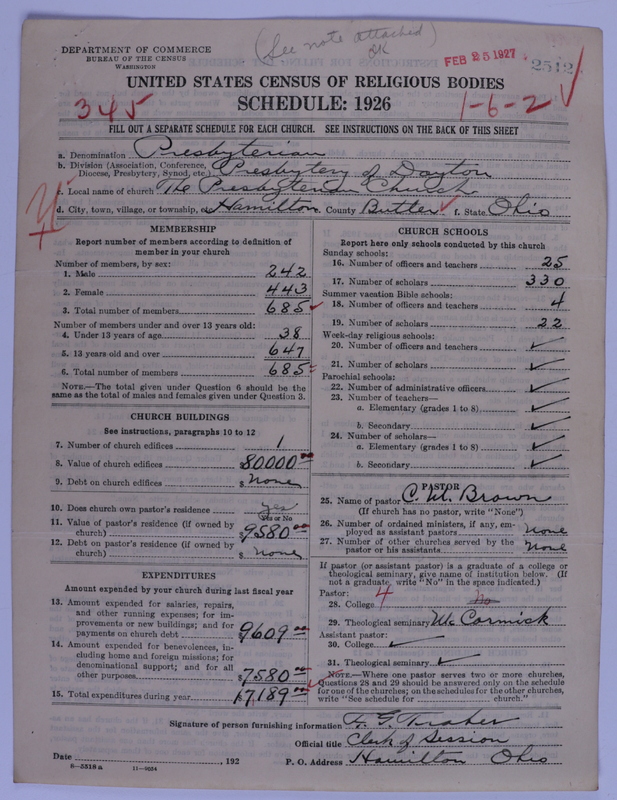 (See note attached)
OK
DEPARTMENT OF COMMERCE
BUREAU OF THE CENSUS
WASHINGTON
FEB 25 1927
2512
UNITED STATES CENSUS OF RELIGIOUS BODIES
SCHEDULE: 1926
345
1-6-2
FILL OUT A SEPARATE SCHEDULE FOR EACH CHURCH. SEE INSTRUCTIONS ON THE BACK OF THIS SHEET
a. Denomination Presbyterian
b. Division (Association, Conference, Diocese, Presbytery, Synod, etc.) Presbytery of Dayton
c. Local name of church The Presbyterian Church
d. City, town, village, or township, etc. Hamilton County Butler f. State Ohio
MEMBERSHIP
Report number of members according to definition of
member in your church
Number of members, by sex:
1. Male 242
2. Female 443
3. Total number of members 685
Number of members under and over 13 years old:
4. Under 13 years of age 38
5. 13 years old and over 647
6. Total number of members 685
NOTE.—The total given under Question 6 should be the
same as the total of males and females given under Question 3.
CHURCH BUILDINGS
See instructions, paragraphs 10 to 12
7. Number of church edifices 1
8. Value of church edifices $80000.00
9. Debt on church edifices $ None
10. Does church own pastor's residence? Yes
Yes or No
11. Value of pastor's residence (if owned by
church) $9580.00
12. Debt on pastor's residence (if owned by
church) $ None
EXPENDITURES
Amount expended by your church during last fiscal year
13. Amount expended for salaries, repairs,
and other running expenses; for im-
provements or new buildings; and for
payments on church debt $9609.00
14. Amount expended for benevolences, in-
cluding home and foreign missions; for
denominational support; and for all
other purposes $7580.00
15. Total expenditures during year 17,189.00
CHURCH SCHOOLS
Report here only schools conducted by this church
Sunday schools:
16. Number of officers and teachers 25
17. Number of scholars 330
Summer vacation Bible schools:
18. Number of officers and teachers 4
19. Number of scholars 22
Week-day religious schools:
20. Number of officers and teachers ✓
21. Number of scholars ✓
Parochial schools:
22. Number of administrative officers ✓
23. Number of teachers—
a. Elementary (grades 1 to 8) ✓
b. Secondary ✓
24. Number of scholars—
a. Elementary (grades 1 to 8) ✓
b. Secondary ✓
PASTOR
25. Name of pastor C. M. Brown
(If church has no pastor, write "None")
26. Number of ordained ministers, if any, em-
ployed as assistant pastors None
27. Number of other churches served by the
pastor or his assistants None
If pastor (or assistant pastor) is a graduate of a college or
theological seminary, give name of institution below. (If
not a graduate, write "No" in the space indicated.)
Pastor: 4
28. College No
29. Theological seminary McCormick
Assistant pastor:
30. College ✓
31. Theological seminary ✓
NOTE.—Where one pastor serves two or more churches,
Questions 28 and 29 should be answered only on the schedule
for one of the churches; on the schedules for the other churches,
write "See schedule for church."
Signature of person furnishing information
Official title Clerk of Session
Date , 192
P. O. Address Hamilton Ohio
8—5518 a 11—9024